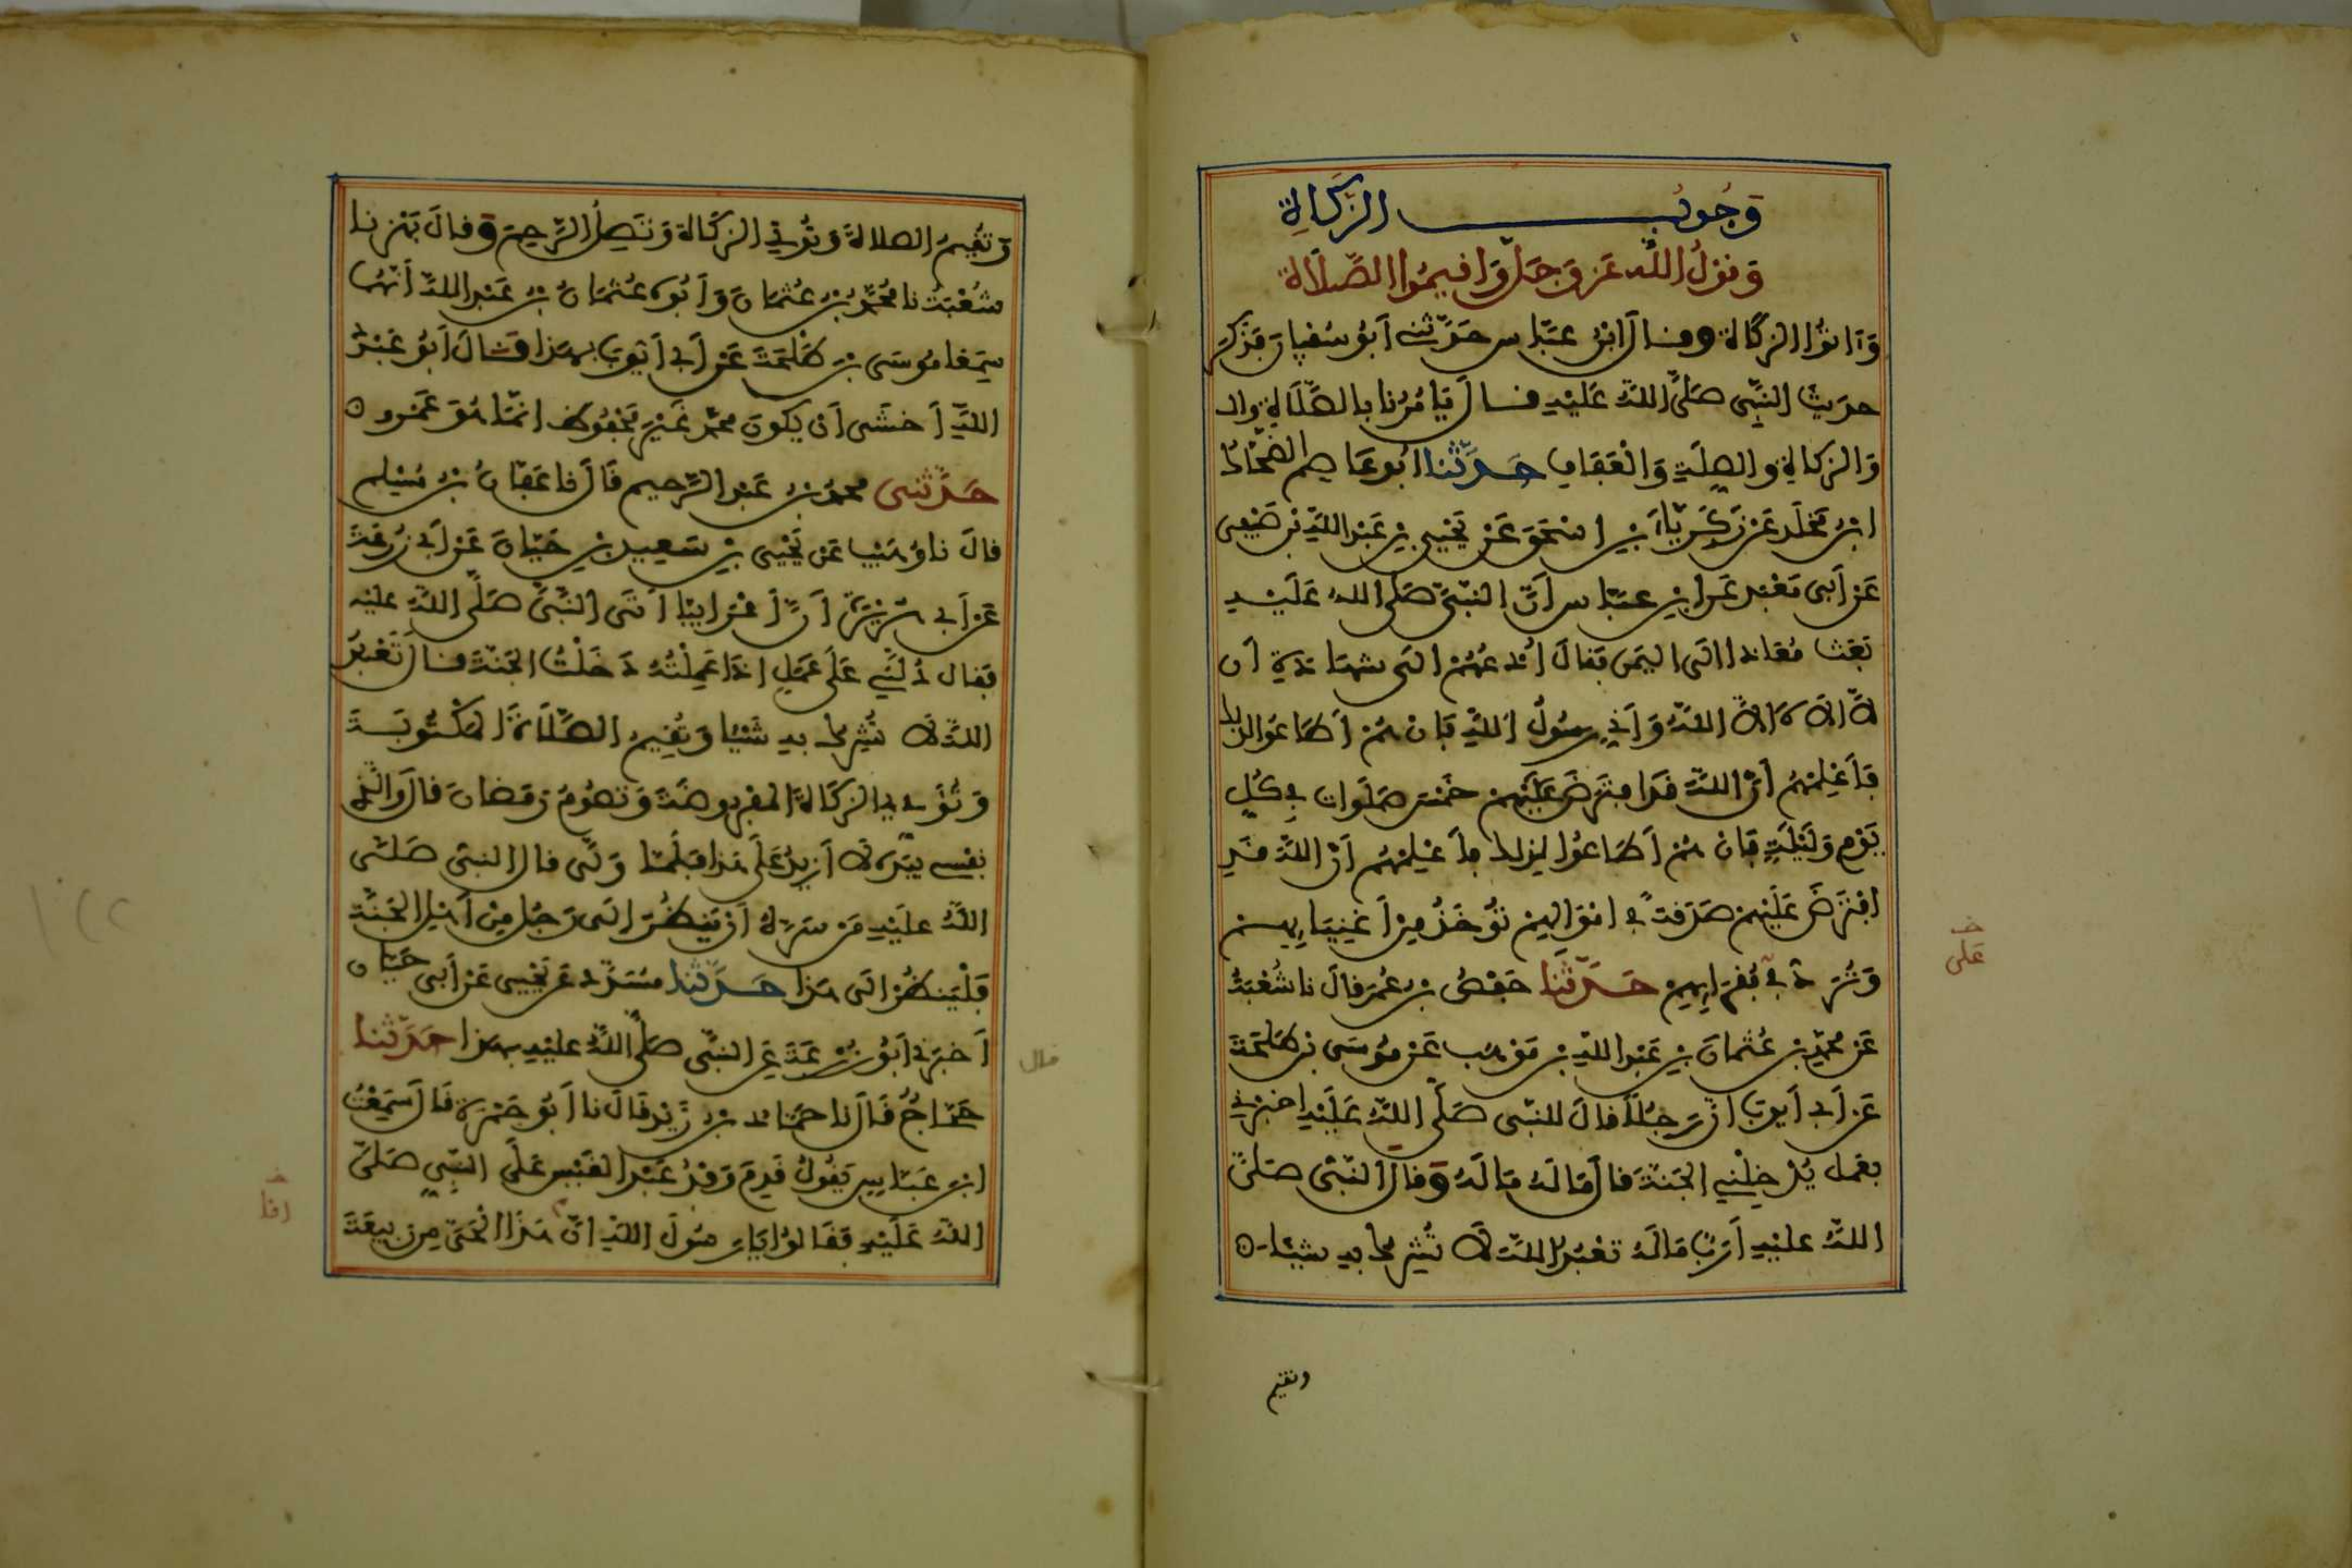 وُجُوبُ الزَّكَاةِ
وَقَوْلُ اللَّهِ عَزَّ وَجَلَّ وَاَقِيمُوا الصَّلَاةَ
وَءَاتُوا الزَّكَاةَ وقال ابْنُ عَبَّاسٍ حَدَّثَنِي اَبُو سُفْيَانَ فَذَكَرَ
حديثَ النَّبِيِّ صَلَّى اللَّهُ عَلَيْهِ فقال يَامُرُنا بِالصَّلَاةِ
وَالزكاةِ والصِّلَةِ وَالْعَفَافِ حَدَّثَنَا اَبُو عَاصِمٍ الضَّحَّاكُ
ابْنُ مَخْلَدٍ عَنْ زَكَرِيَّاءَ بْنِ اِسْحَقَ عَنْ يَحْيَى بْنِ عَبْدِ اللَّهِ بْنِ صَيْفِي
عَنْ اَبِي مَعْبَدٍ عَنِ ابْنِ عَبَّاسٍ اَنَّ النَّبِيَّ صَلَّى اللهُ عَلَيْهِ
بَعَثَ مُعَاذا اِلَى اليَمَنِ فَقَالَ اُدْعُهُمْ اِلَى شهَادَةِ اَن
لَّا اِلَهَ اِلَّا اللَّهُ وَاَنِّي رَسُولُ اللَّهِ فَاِنْ هُمْ اَطَاعُوا لذلك
فَاَعْلِمْهُم اَنَّ اللَّهَ قَدِ افْتَرَضَ عَلَيْهِمْ خَمْسَ صَلَوَاتٍ فِي كُلِّ
يَوْمٍ وَلَيْلَةٍ فَاِنْ هُمْ اَطَاعُوا لِذلك فاَعْلِمْهُم اَنَّ اللَّهَ قَدِ
افْتَرَضَ عَلَيْهِمْ صَدَقَةً فِي امْوَالِهِمْ تُؤْخَذُ مِنْ اَغْنِيَايِهِمْ
وَتُرَدُّ فِي فُقَرَايِهِمْ حَدَّثَنَا حَفْصُ بْنُ عُمَرَ قَالَ نا شُعْبَةُ
عَنْ مُحَمَّدِ بْنِ عُثْمَانَ بْنِ عَبْدِ اللَّهِ بْنِ مَوْهَبٍ عَنْ مُوسَى بْنِ طَلْحَةَ
عَنْ اَبِي اَيُّوبَ اَنَّ رَجُلًا قالَ للنَّبِي صَلَّى اللَّهُ عَلَيْهِ اخبرني
بعمل يُدْخِلُنِي الجَنَّةَ قَالَ مَا لَهُ مَا لَهُ وَقال النَّبِيُّ صَلَّى
اللَّهُ عليْهِ اَرَبٌ مَا لَهُ تَعْبُدُ اللَّهَ لَا تُشْرِكُ بِهِ شَيْئا
وتقيم
خـ
عَلى
وَتُقِيمُ الصلاةَ وَتُوتِي الزكَاةَ وَتَصِلُ الرَّحِمَ وَقالَ بَهْز نا
شُعْبَةُ نا مُحَمَّدُ بْنُ عُثْمَانَ وَاَبُوهُ عُثْمَانُ بْنُ عَبْدِ اللَّهِ اَنَّهُمَا
سَمِعَا مُوسَى بْنَ طَلْحَةَ عَنْ اَبِي اَيُّوبَ بِهَذا قَالَ اَبُو عَبْدِ
اللَّهِ اَخْشَى اَنْ يَكُونَ محمد غَيْرَ مَحْفُوظٍ انَّمَا هُوَ عَمْرو
حَدَّثَنِي محمدُ بْنُ عَبْدِ الرَّحِيمِ قَالَ نا عَفَّانُ بْنُ مُسْلِمٍ
قالَ نا وُهَيْبٌ عَنْ يَحْيَى بْنِ سَعِيدِ بْنِ حَيَّانَ عَنْ اَبِي زُرْعَةَ
عَنْ اَبِي هُرَيْرَةَ اَنَّ اَعْرَابِيًّا اَتَى النَّبِيَّ صَلَّى اللَّهُ عليْهِ
فقال دُلَّنِي عَلَى عَمَلٍ اِذَا عَمِلْتُهُ دَخَلْتُ الجَنَّةَ قال تَعْبُدُ
اللَّهَ لَا تُشْرِكُ بِهِ شَيْئا وَتُقِيمُ الصَّلَاةَ الْمَكْتُوبَةَ
وَتُؤَدِّي الزَّكَاةَ المَفْرُوضَةَ وَتَصُومُ رَمَضَانَ قالَ وَالَّذِي
نَفْسِي بِيَدِهِ لَا اَزِيدُ عَلَى هَذا فَلَمَّا وَلَّى قال النَّبِي صَلَّى
اللَّهُ عَلَيْهِ مَنْ سَرَّهُ اَنْ يَنظُرَ اِلَى رَجُلٍ مِنْ اَهْلِ الجَنَّة
فَلْيَنظُرْ اِلَى هَذا حَدَّثَنَا مُسَدَّد عَنْ يَحْيَى عَنْ اَبِي حَيَّان
اَخْبَرَنِي اَبُو زُرْعَةَ عَنِ النَّبِّي صَلَّى اللَّهُ عليْهِ بِهَذا حَدَّثَنَا
حَجَّاجٌ قَالَ نا حَمَّادُ بْنُ زَيْدٍ قَالَ نا اَبُو جَمْرَةَ قَالَ سَمِعْتُ
ابْنَ عَبَّاسٍ يَقُولُ قَدِمَ وَفْدُ عَبْدِ الْقَيْسِ عَلَى النَّبِي صَلَّى
اللَّهُ عَلَيْهِ فَقَالُوا يَا رَسُولَ اللَّهِ اِنَّ هَذَا الْحَيَّ مِن رَبِيعَةَ
قال
خـ
اِنَّا